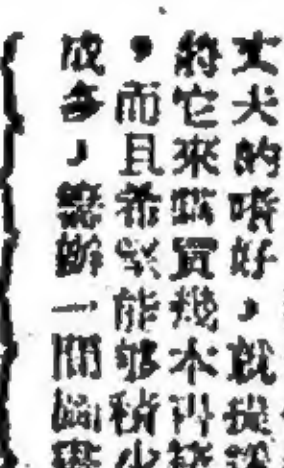 丈夫的嗜好，就
將它來購買幾本
，而且希望能够積少
成多，籌辦一間圖書